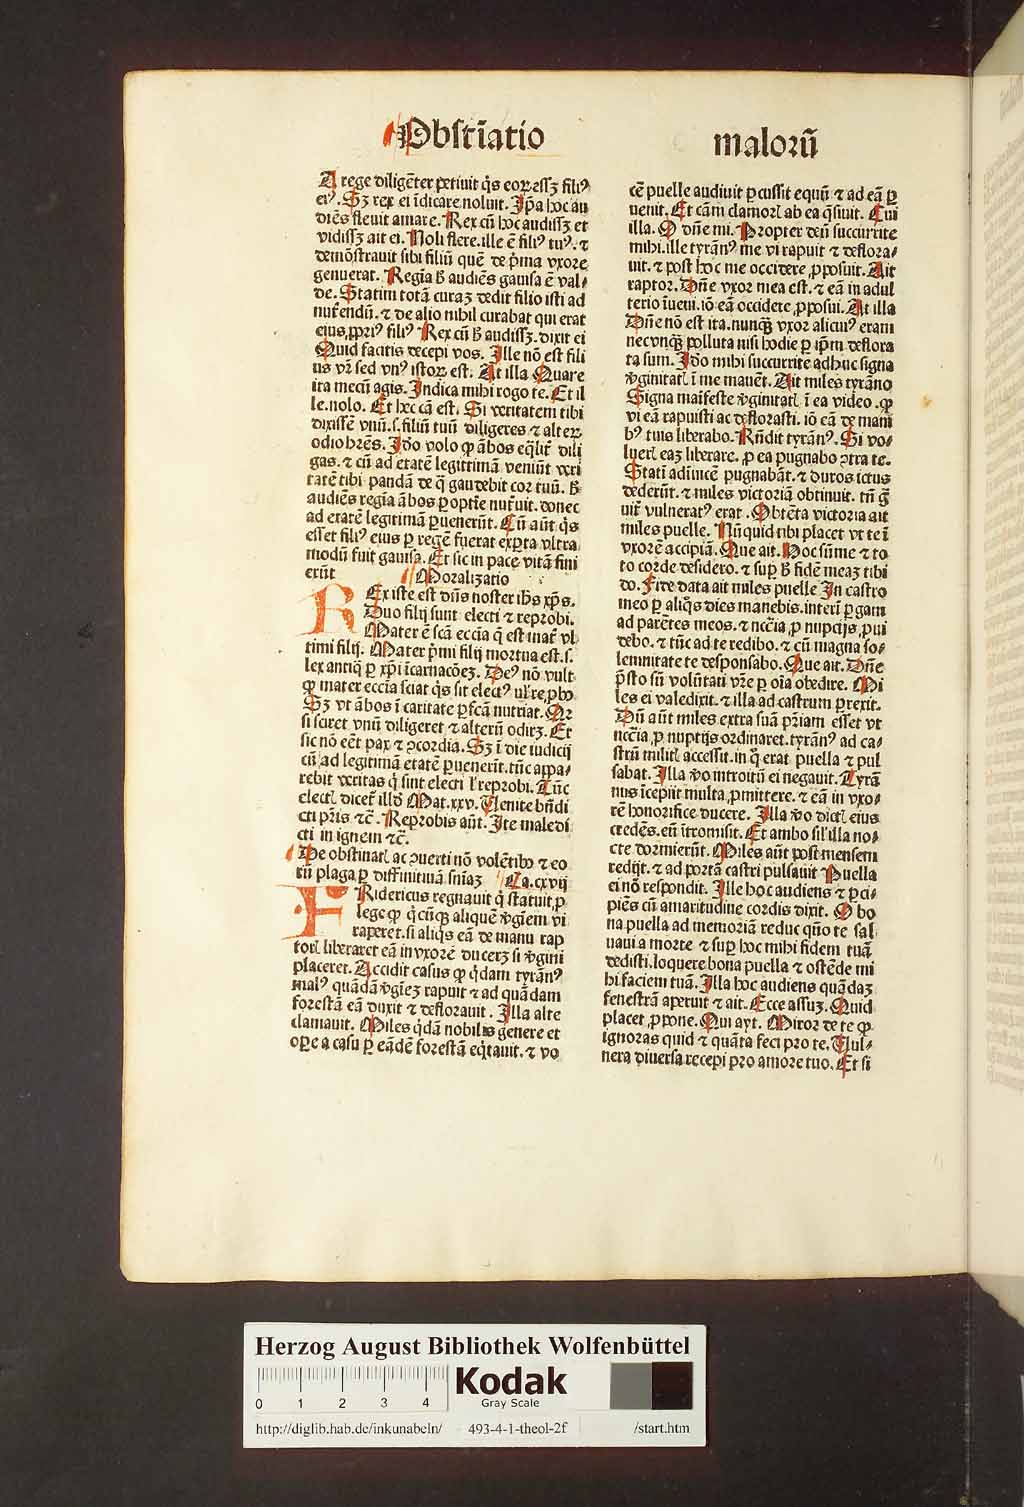 Obstīatio
malorū
A rege diligēter petiuit q̄s eoꝝ essꝫ filiꝰ
eiꝰ. Sꝫ rex ei īdicare noluit. Ip̄a hoc au
diēs fleuit amare. Rex cū hoc audissꝫ et
vidissꝫ ait ei. Noli flere. ille ē filiꝰ tuꝰ. ⁊
demōstrauit sibi filiū quē de p̄ma vxore
genuerat. Regīa ħ audiēs gauisa ē val⸗
de. Statim totā curaꝫ dedit filio isti ad
nut̄endū. ⁊ de alio nihil curabat qui erat
eius ꝓpriꝰ filiꝰ Rex cū ħ audissꝫ. dixit ei
Quid facitis decepi vos. Ille nō est fili
us vr̄ sed vnꝰ istoꝝ est. At illa Quare
ita mecū agis. Indica mihi rogo te. Et il
le. nolo. Et hec cā est. Si veritatem tibi
dixissē vnū. s. filiū tuū diligeres ⁊ alterꝝ
odio hrēs. Iđo volo ꝙ ābos eq̄lit̄ dili
gas. ⁊ cū ad etatē legittimā veniūt veri
tatē tibi pandā de q̄ gaudebit cor tuū. ħ
audiēs regīa ābos ꝑoptīe nut̄uit. donec
ad etatē legitimā ꝑuenerūt. Cū aūt q̄s
esset filiꝰ eius ꝑ regē fuerat exꝑta vltra
modū fuit gauisa. Et sic in pace vitā fini
erūt Moralizatio
REx iste est dn̄s noster ih̄s xp̄s.
Duo filij sunt electi ⁊ reprobi.
Mater ē scā ecc̄ia q̄ est mat̄ vl
timi filij. Mater p̄mi filij mortua est. s.
lex antiq̄ ꝑ xp̄i īcarnacōeꝫ. Deꝰ nō vult
ꝙ mater ecc̄ia sciat q̄s sit electꝰ ul̓ reꝓbꝰ
Sꝫ vt ābos ī caritate ꝑfc̄a nutriat. Qꝛ
si sciret vnū diligeret ⁊ alterū odirꝫ. Et
sic nō eēt pax ⁊ ꝯcordia. Sꝫ ī die iudicij
cū ad legitimā etatē ꝑuenerūt. tūc appa⸗
rebit veritas q̄ sint electi l̓ reprobi. Tūc
electꝭ dicet̄ illđ Mat. xxv. Uenite bn̄di
cti pr̄is ⁊c̄. Reprobis aūt. Ite maledi
cti in ignem ⁊c̄.
De obstinatꝭ ac ꝯuerti nō volētibꝰ ⁊ eo
rū plaga ꝑ diffinitiuā sn̄iaꝫ Ca. cxvij
FRidericus regnauit q̄ statuit ꝓ
lege ꝙ q̄cūqꝫ aliquē v̓gīem vi
raperet. si aliq̄s eā de manu rap
torꝭ liberaret eā in vxorē ducerꝫ si v̓gini
placeret. Accidit casus ꝙ q̄dam tyrānꝰ
malꝰ quādā v̓gīeꝫ rapuit ⁊ ad quādam
forestā eā duxit ⁊ deflorauit. Illa alte
clamauit. Miles q̄dā nobilis genere et
oꝑe a casu ꝑ eādē forestā eq̄tauit. ⁊ vo
cē puelle audiuit ꝑcussit equū ⁊ ad eā ꝑ
uenit. Et cām clamorꝭ ab ea q̄siuit. Cui
illa. O dn̄e mi. Propter deū succurrite
mihi. ille tyrānꝰ me vi rapuit ⁊ deflora⸗
uit. ⁊ post hoc me occidere ꝓposuit. Ait
raptor. Dn̄e vxor mea est. ⁊ eā in adul
terio īueni. iō eā occidere ꝓposui. At illa
Dn̄e nō est ita. nunqꝫ vxor alicuiꝰ eram
nec vnqꝫ polluta nisi hodie ꝑ ip̄m deflora
ta sum. Iđo mihi succurrite adhuc signa
v̓ginitatꝭ ī me manēt. Ait miles tyrāno
Signa maīfeste v̓ginitatꝭ ī ea video. ꝙ
vi eā rapuisti ac deflorasti. iō eā de mani
bꝰ tuis liberabo. Rn̄dit tyrānꝰ. Si vo⸗
luerꝭ eaꝫ liberare. ꝓ ea pugnabo ꝯtra te.
Statī adīuicē pugnabāt. ⁊ duros ictus
dederūt. ⁊ miles victoriā obtinuit. tn̄ g̃
uit̄ vulneratꝰ erat. Obtēta victoria ait
miles puelle. Nūquid tibi placet vt te ī
vxorē accipiā. Que ait. Hoc sūme ⁊ to
to corde desidero. ⁊ suꝑ ħ fidē meaꝫ tibi
do. Fide data ait miles puelle In castro
meo ꝑ aliq̄s dies manebis. interī ꝑgam
ad parētes meos. ⁊ ncc̄ia ꝓ nupcijs ꝓui
debo. ⁊ tūc ad te redibo. ⁊ cū magna so⸗
lemnitate te desponsabo. Que ait. Dn̄e
p̄sto sū volūtati vr̄e ꝑ oīa obedire. Mi
les ei valedixit. ⁊ illa ad castrum ꝑrexit.
Dū aūt miles extra suā pr̄iam esset vt
ncc̄ia ꝓ nuptijs ordinaret. tyrānꝰ ad ca⸗
strū militꝭ accessit. in q̄ erat puella ⁊ pul
sabat. Illa v̓o introitū ei negauit. Tyrā
nus īcepit multa ꝓmittere. ⁊ eā in vxo⸗
rē honorifice ducere. Illa v̓o dictꝭ eius
credēs. eū ītromisit. Et ambo sil̓ illa no⸗
cte dormierūt. Miles aūt post mensem
redijt. ⁊ ad portā castri pulsauit Puella
ei nō respondit. Ille hoc audiens ⁊ ꝑci⸗
piēs cū amaritudine cordis dixit. O bo
na puella ad memoriā reduc qūo te sal
uaui a morte ⁊ suꝑ hoc mihi fidem tuā
dedisti. loquere bona puella ⁊ ostēde mi
hi faciem tuā. Illa hoc audiens quādaꝫ
fenestrā aperuit ⁊ ait. Ecce assuꝫ. Quid
placet ꝓpone. Qui ayt. Miror de te ꝙ
ignoras quid ⁊ quāta feci pro te. Uul⸗
nera diuersa recepi pro amore tuo. Et si
Herzog August Bibliothek Wolfenbüttel
0 1 2 3 4
Kodak
Gray Scale
http://diglib.hab.de/inkunabeln/ 493-4-1-theol-2f /start.htm